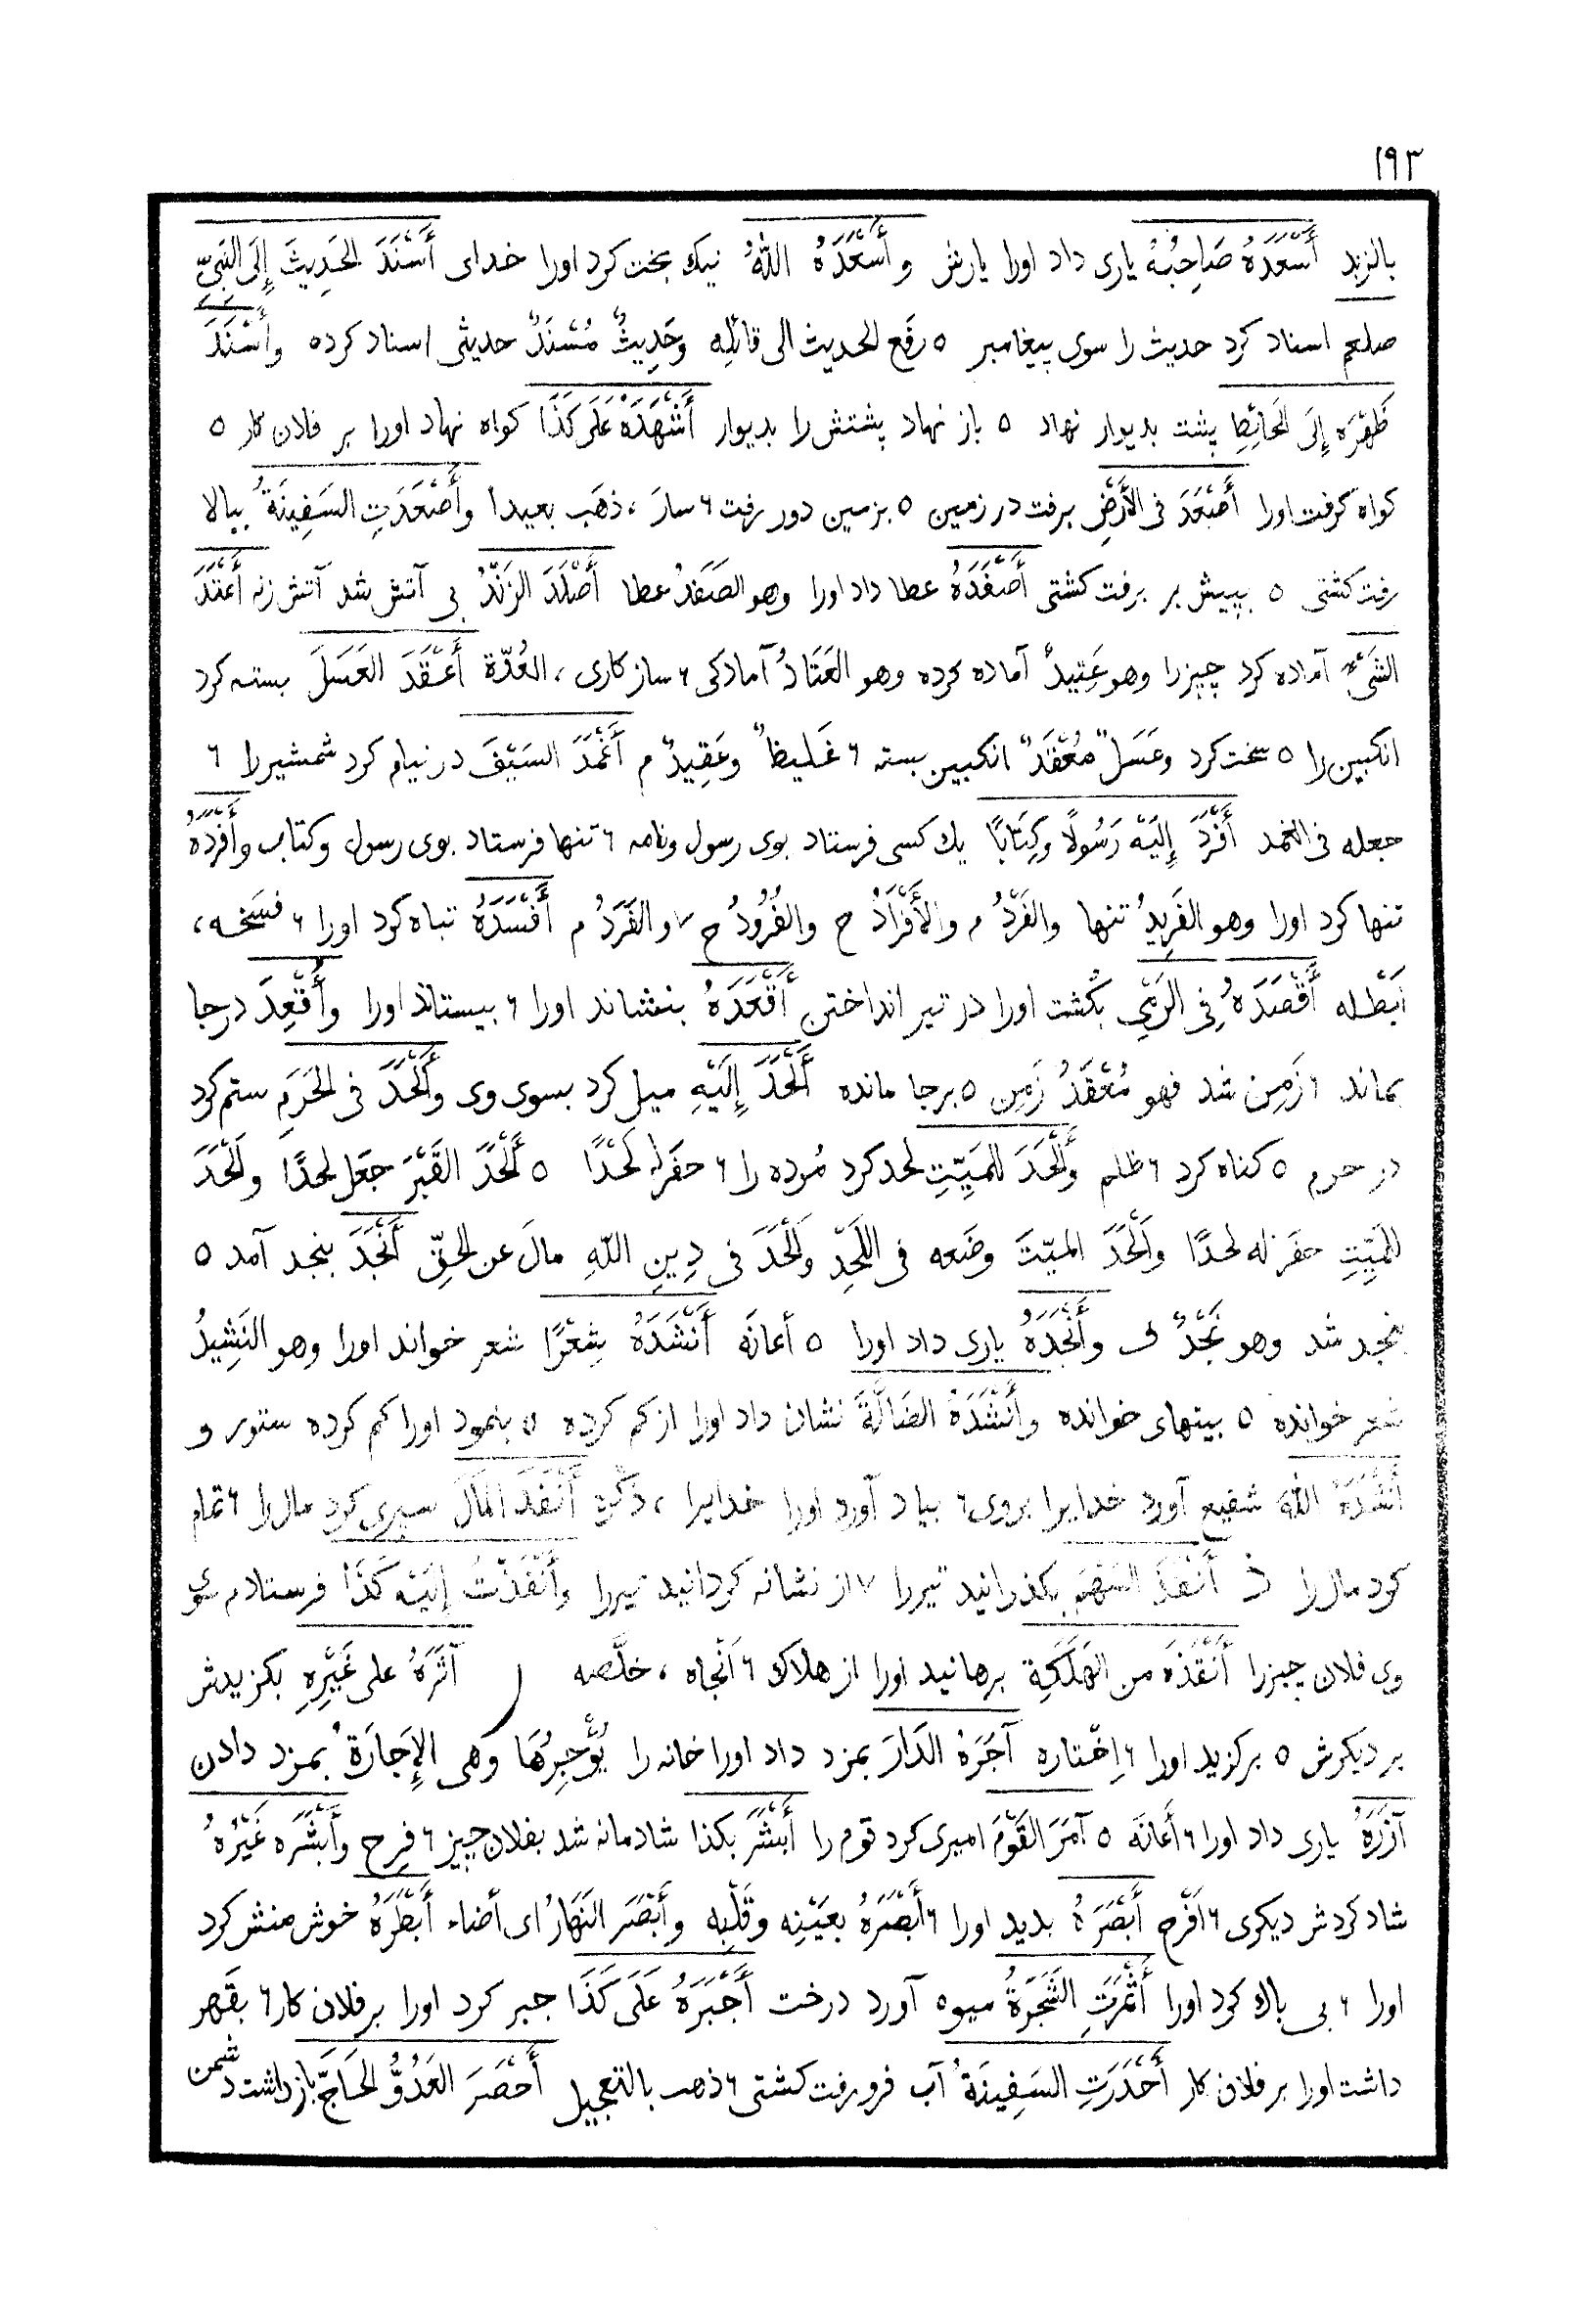 ۱۹۳
بالزبد أَسْعَدَهُ صَاحِبُهُ یاری داد اورا یارش وأَسْعَدَهُ اللهُ نیك بخت کرد اورا خدای أَسْنَدَ الحَدِیثَ إِلَی النَبِیِّ
صلعم اسناد کرد حدیث را سوی پیغامبر ٥ رَفَع الحدیث الی قائِلِه وحَدِیثٌ مُسْنَدٌ حدیثی اسناد کرده وأَسْنَدَ
ظَهْرَه إِلَی الحَائِطِ پشت بدیوار نهاد ٥ باز نهاد پشتش را بدیوار أَشْهَدَهُ عَلَی کَذَا کواه نهاد اورا بر فلان کار ٥
کواه کرفت اورا أَصْعَدَ فی الأَرْضِ برفت در زمین ٥ بزمین دور رفت ۶ سارَ ، ذهَب بعیداً وأَصْعَدَتِ السَفِینَةُ ببالا
رفت کشتی ٥ بپیش بر برفت کشتی أَصْفَدَهُ عطا داد اورا وهو الصَفَدُ عطا أَصْلَدَ الزَنْدُ بی آتش شد آتش زنه أَعْتَدَ
الشَیْءَ آماده کرد چیز را وهو عَتِیدٌ آماده کرده وهو العَتَادُ آمادکی ۶ ساز کاری ، العُدّة أَعْقَدَ العَسَلَ بسته کرد
انکبین را ٥ سخت کرد وعَسَلٌ مُعْقَدٌ انکبین بسته ۶ غَلیظاً وعَقِیدٌ م أَغْمَدَ السَیْفَ در نیام کرد شمشیر را ۶
جعله فی الغمد أَفْرَدَ إِلَیْهِ رَسُولًا وکِتَابًا یك کسی فرستاد بوی رسول ونامه ۶ تنها فرستاد بوی رسول وکتاب وأَفْرَدَهُ
تنها کرد اورا وهو الفَرِیدُ تنها والفَرْدُ م والأَفْرَادُ ح والفُرُودُ ح ۷ والفَرَدُ م أَفْسَدَهُ تباه کرد اورا ۶ فَسَخه ،
اَبْطَله أَقْصَدَهُ فِی الرَمْیِ بکُشت اورا در تیر انداختن أَقْعَدَهُ بنشاند اورا ۶ بیستاند اورا وأُقْعِدَ در جا
بماند ۶ زَمِن شد فهو مُقْعَدُ زَمِن ٥ برجا مانده أَلْحَدَ إِلَیْهِ میل کرد بسوی وی وأَلْحَدَ فی الحَرَمِ ستم کرد
در حرم ٥ کناه کرد ۶ ظلم وأَلْحَدَ للمَیِّتِ لحد کرد مُرده را ۶ حفَر له لَحْدًا ٥ أَلْحَدَ القَبْرَ جعَل لحدًا ولَحَدَ
لِلْمَیِّتِ حفَر له لحدًا وأَلْحَدَ المیّتَ وضَعه فی اللَحْدِ وأَلْحَدَ فی دِینِ اللهِ مالَ عن الحقِّ أَنْجَدَ بنجد آمد ٥
بنجد شد وهو نَجْدٌ لـ وأَنْجَدهُ یاری داد اورا ٥ أعانَه أَنْشَدَهُ شِعْرًا شعر خواند اورا وهو النَشِیدُ
شعر خوانده ٥ بیتهای خوانده وأَنْشَدَهُ الضَالَّةَ نشان داد اورا از کم کرده ٥ بنمود اورا کم کرده ستور و
أَنْشَدَهُ اللهَ شفیع آورد خدایرا بروی ۶ بیاد آورد اورا خدایرا ، ذکَّره أَنْفَدَ المَالَ سپری کرد مال را ۶ تمام
کرد مال را ذ أَنْفَذَ السَهْمَ بکذرانید تیر را ۷ از نشانه کردانید تیر را وأَنْفَذْتُ إِلَیْهِ کَذَا فرستادم سوی
وی فلان چیز را أَنْقَذَه من الهَلَکَةِ برهانید اورا از هلاك ۶ اَنْجاه ، خلَّصه ر آثَرَهُ علی غَیْرِهِ بکزیدش
بر دیکرش ٥ برکزید اورا ۶ اِختاره آجَرَهُ الدَارَ بمزد داد اورا خانه را یُؤْجِرُهَا وهی الإِجَارَةُ بمزد دادن
آزَرَهُ یاری داد اورا ۶ أَعانَه ٥ آمَرَ القَوْمَ امیری کرد قوم را أَبْشَرَ بکذا شادمانه شد بفلان چیز ۶ فرِح وأَبْشَرَه غَیْرُهُ
شاد کردش دیکری ۶ افْرح أَبْصَرَهُ بدید اورا ۶ أَبْصَرَهُ بعَیْنِه وقَلْبِه وأَبْصَر النَهَارُ ای أضاء أَبْطَرَهُ خوش منش کرد
اورا ۶ بی باك کرد اورا أَثْمَرَتِ الشَجَرَةُ میوه آورد درخت أَجْبَرَهُ عَلَی کَذَا جبر کرد اورا بر فلان کار ۶ بقَهر
داشت اورا بر فلان کار أَحْدَرَتِ السَفِینَةُ آب فرو رفت کشتی ۶ ذهب بالتعجیل أَحْصَرَ العَدُوُّ الحَاجَّ باز داشت دشمن